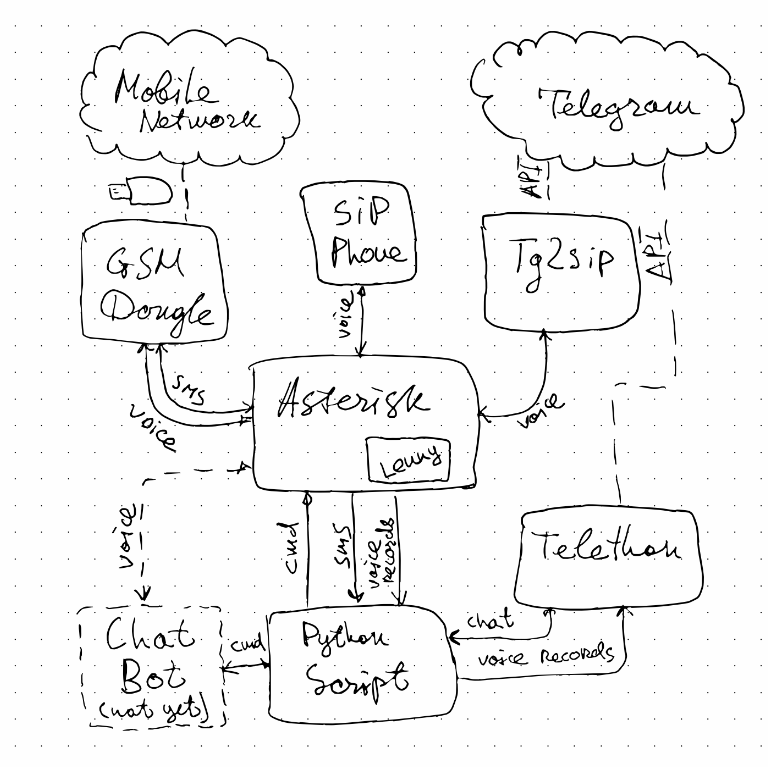 Mobile
Network
Telegram
API
SiP
Phone
GSM
Dongle
Tg2sip
API
voice
SMS
voice
Asterisk
voice
Lenny
voice
cmd
SMS
voice
records
Telethon
Chat
Bot
(not yet)
cmd
Python
Script
chat
voice records